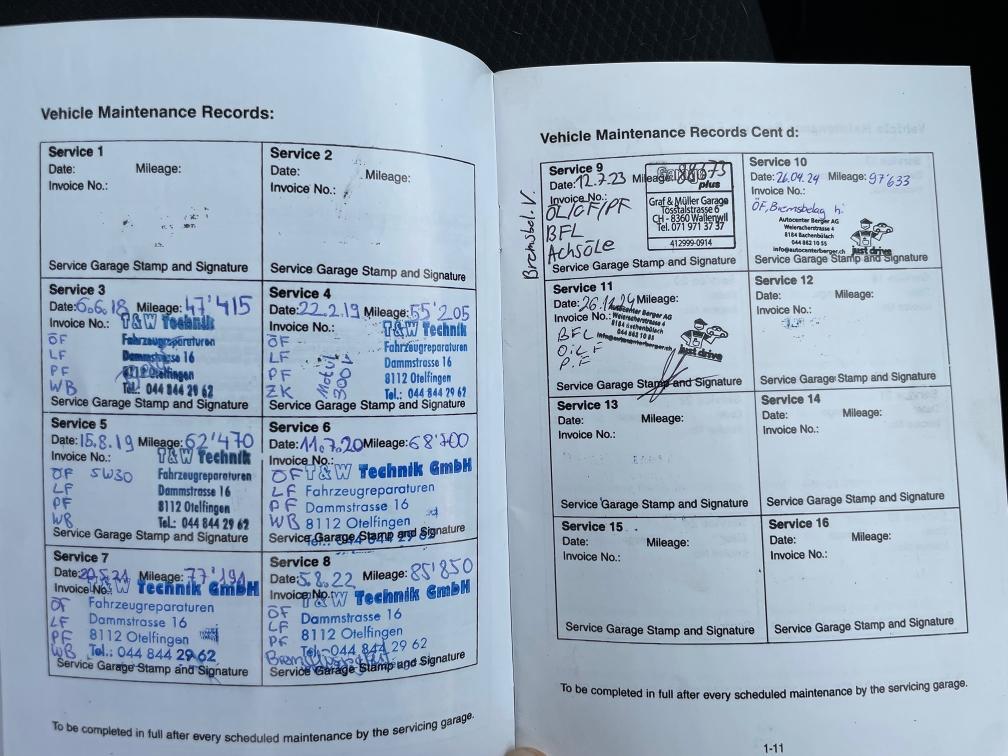 Vehicle Maintenance Records:
Service 1
Date: Mileage:
Invoice No.:
Service Garage Stamp and Signature
Service 2
Date: Mileage:
Invoice No.:
Service Garage Stamp and Signature
Service 3
Date: 6.6.18 Mileage: 47'415
Invoice No.: T&W Technik
ÖF Fahrzeugreparaturen
LF Dammstrasse 16
PF 8112 Otelfingen
WB Tel.: 044 844 29 62
Service Garage Stamp and Signature
Service 4
Date: 22.2.19 Mileage: 55'205
Invoice No.: T&W Technik
ÖF Fahrzeugreparaturen
LF Dammstrasse 16
PF 8112 Otelfingen
ZK Tel.: 044 844 29 62
Motul
Service Garage Stamp and Signature
Service 5
Date: 15.8.19 Mileage: 62'470
Invoice No.: T&W Technik
ÖF 5W30 Fahrzeugreparaturen
LF Dammstrasse 16
PF 8112 Otelfingen
WB Tel.: 044 844 29 62
Service Garage Stamp and Signature
Service 6
Date: 11.7.20 Mileage: 68'700
Invoice No.:
ÖF T&W Technik GmbH
LF Fahrzeugreparaturen
PF Dammstrasse 16
WB 8112 Otelfingen
Tel.: 044 844 29 62
Service Garage Stamp and Signature
Service 7
Date: Mileage: 77'191
Invoice No.: T&W Technik GmbH
ÖF Fahrzeugreparaturen
LF Dammstrasse 16
PF 8112 Otelfingen
WB Tel.: 044 844 29 62
Service Garage Stamp and Signature
Service 8
Date: 5.8.22 Mileage: 85'850
Invoice No.: T&W Technik GmbH
ÖF Fahrzeugreparaturen
LF Dammstrasse 16
PF 8112 Otelfingen
Tel.: 044 844 29 62
Service Garage Stamp and Signature
To be completed in full after every scheduled maintenance by the servicing garage.
Vehicle Maintenance Records Cent d:
Service 9
Date: 12.7.23 Mileage:
Garage
plus
Invoice No.:
ÖL/GF/PF
BFL
Achsöle
Bremsbel. V.
Graf & Müller Garage
Tösstalstrasse 6
CH - 8360 Wallenwil
Tel. 071 971 37 37
412999-0914
Service Garage Stamp and Signature
Service 10
Date: 26.04.24 Mileage: 97'633
Invoice No.:
ÖF, Bremsbelag h.
Autocenter Berger AG
Weieracherstrasse 4
8184 Bachenbülach
044 862 10 55
info@autocenterberger.ch
just drive
Service Garage Stamp and Signature
Service 11
Date: 26.11.24 Mileage:
Invoice No.:
Autocenter Berger AG
Weieracherstrasse 4
8184 Bachenbülach
044 862 10 55
info@autocenterberger.ch
just drive
BFL
ÖiL F
P.F
Service Garage Stamp and Signature
Service 12
Date: Mileage:
Invoice No.:
Service Garage Stamp and Signature
Service 13
Date: Mileage:
Invoice No.:
Service Garage Stamp and Signature
Service 14
Date: Mileage:
Invoice No.:
Service Garage Stamp and Signature
Service 15
Date: Mileage:
Invoice No.:
Service Garage Stamp and Signature
Service 16
Date: Mileage:
Invoice No.:
Service Garage Stamp and Signature
To be completed in full after every scheduled maintenance by the servicing garage.
1-11